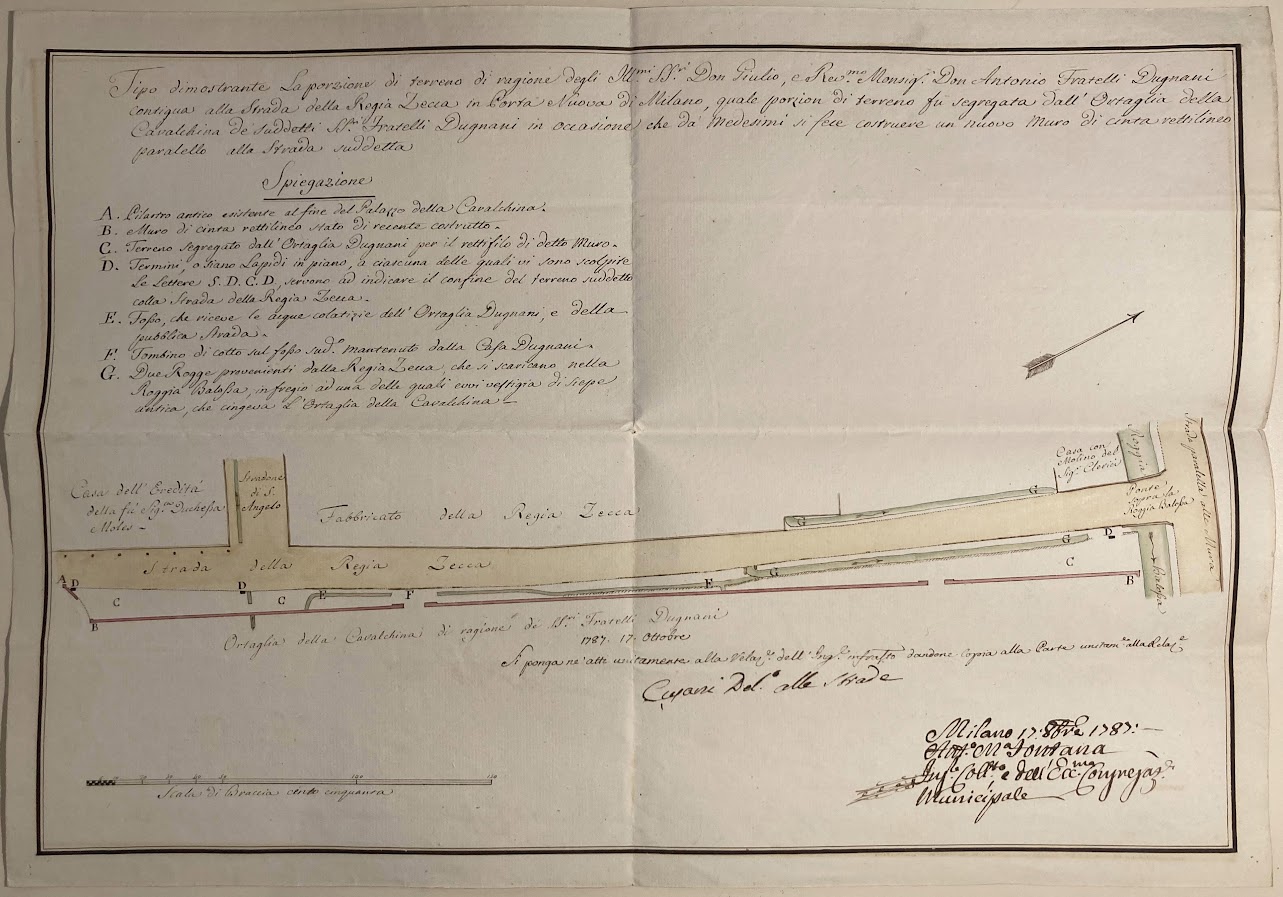 Tipo dimostrante La porzione di terreno di ragione degli Ill.mi SS.ri Don Giulio, e Rev.mo Monsig.r Don Antonio Fratelli Dugnani
contigua alla Strada della Regia Zecca in Porta Nuova di Milano, quale porzion di terreno fù segregata dall'Ortaglia della
Cavalchina de suddetti SS.ri Fratelli Dugnani in occasione, che da' medesimi si fece costruere un nuovo Muro di cinta rettilineo
paralello alla Strada suddetta
Spiegazione
A. Pilastro antico esistente al fine del Palazzo della Cavalchina.
B. Muro di cinta rettilineo stato di recente costrutto.
C. Terreno segregato dall'Ortaglia Dugnani per il rettifilo di detto Muro.
D. Termini, o siano Lapidi in piano, a ciascuna delle quali vi sono scolpite
Le Lettere S. D. C. D, servono ad indicare il confine del terreno suddetto
colla Strada della Regia Zecca.
E. Fosso, che riceve le acque colatizie dell'Ortaglia Dugnani, e della
pubblica Strada.
F. Tombino di cotto sul fosso sud.o mantenuto dalla Casa Dugnani.
G. Due Rogge provenienti dalla Regia Zecca, che si scaricano nella
Roggia Balossa, in fregio ad una delle quali evvi vestigia di siepe
antica, che cingeva L'Ortaglia della Cavalchina
Casa dell'Eredità
della fù Sig.ra Duchessa
Moles
Stradone
di S.
Angelo
Fabbricato della Regia Zecca
Casa con
Molino del
Sig.r Clerici
Roggia
Ponte
sopra la
Roggia Balossa
Strada paralella alle Mura
Balossa
Strada della Regia Zecca
A D
C
B
D
C
E
F
E
G
G
G
G
D
C
B
Ortaglia della Cavalchina di ragione de SS.ri Fratelli Dugnani
1787. 17. Ottobre
Si ponga ne' atti unitamente alla Relaz.e dell'Ing.e infras.to dandone copia alla Parte unitam.e alla Relaz.e
Cusani Del.o alle Strade
Milano 17: 8bre 1787:
Fontana
Ing.e Coll.to e dell'Ecc.ma Congregaz.e
Municipale
10 20 30 40 50 100 150
Scala di Braccia cento cinquanta